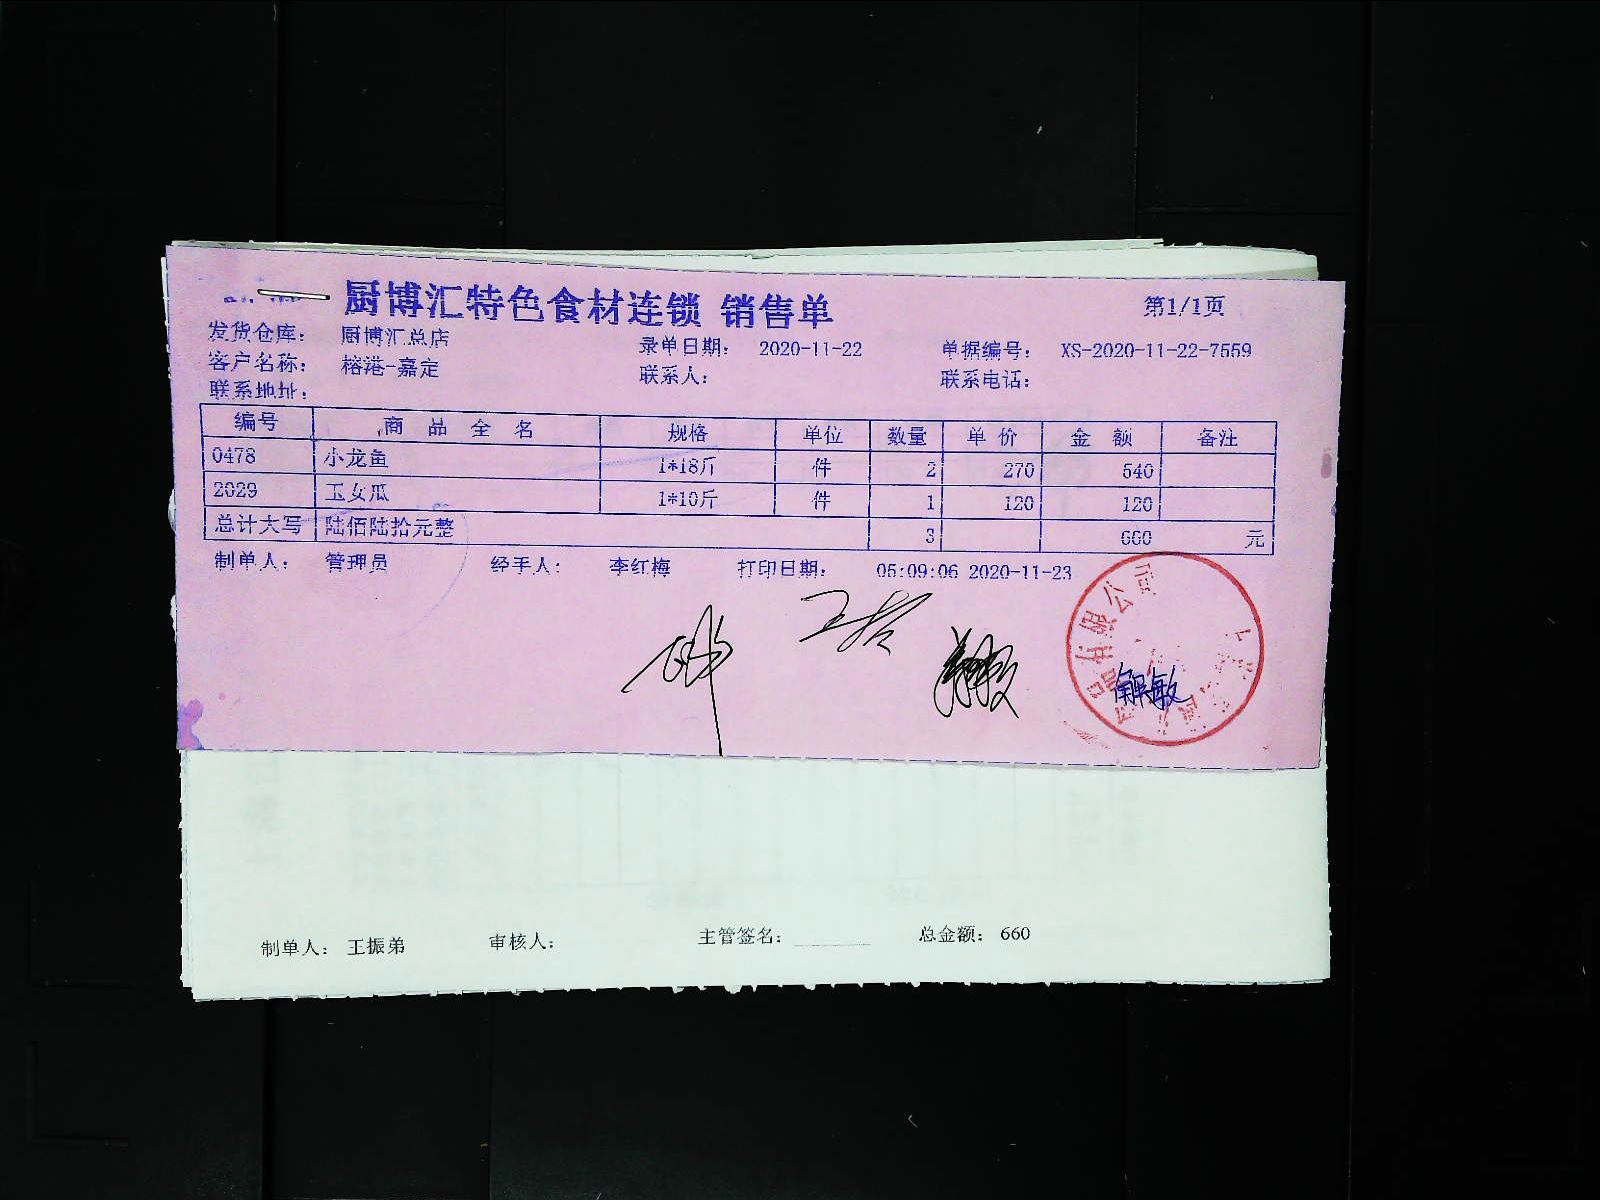 厨博汇特色食材连锁 销售单 第1/1页
发货仓库： 厨博汇总店 录单日期： 2020-11-22 单据编号： XS-2020-11-22-7559
客户名称： 榕港-嘉定 联系人： 联系电话：
联系地址：
编号 商品全名 规格 单位 数量 单价 金额 备注
0478 小龙鱼 1*18斤 件 2 270 540
2029 玉女瓜 1*10斤 件 1 120 120
总计大写 陆佰陆拾元整 3 660 元
制单人： 管理员 经手人： 李红梅 打印日期： 05:09:06 2020-11-23
有限公司
解敏
制单人： 王振弟 审核人： 主管签名： 总金额： 660